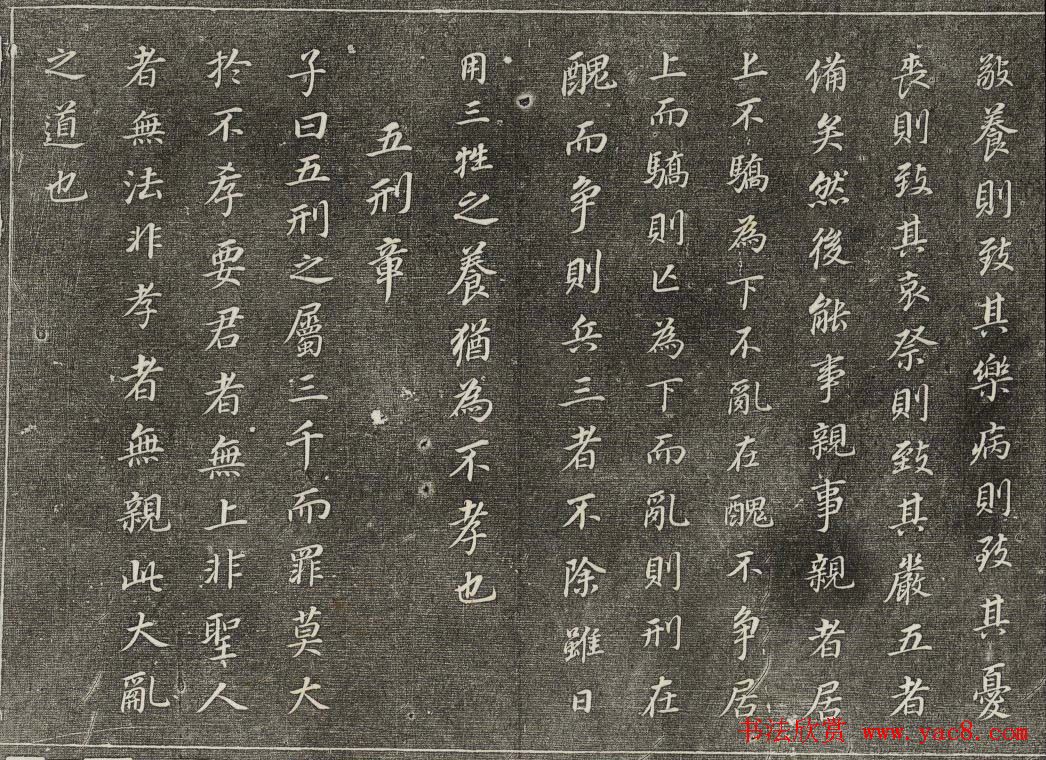 敬養則致其樂病則致其憂
喪則致其哀祭則致其嚴五者
備矣然後能事親事親者居
上不驕為下不亂在醜不争居
上而驕則亡為下而亂則刑在
醜而争則兵三者不除雖日
用三牲之養猶為不孝也
五刑章
子曰五刑之屬三千而罪莫大
扵不孝要君者無上非聖人
者無法非孝者無親此大亂
之道也
书法欣赏 www.yac8.com